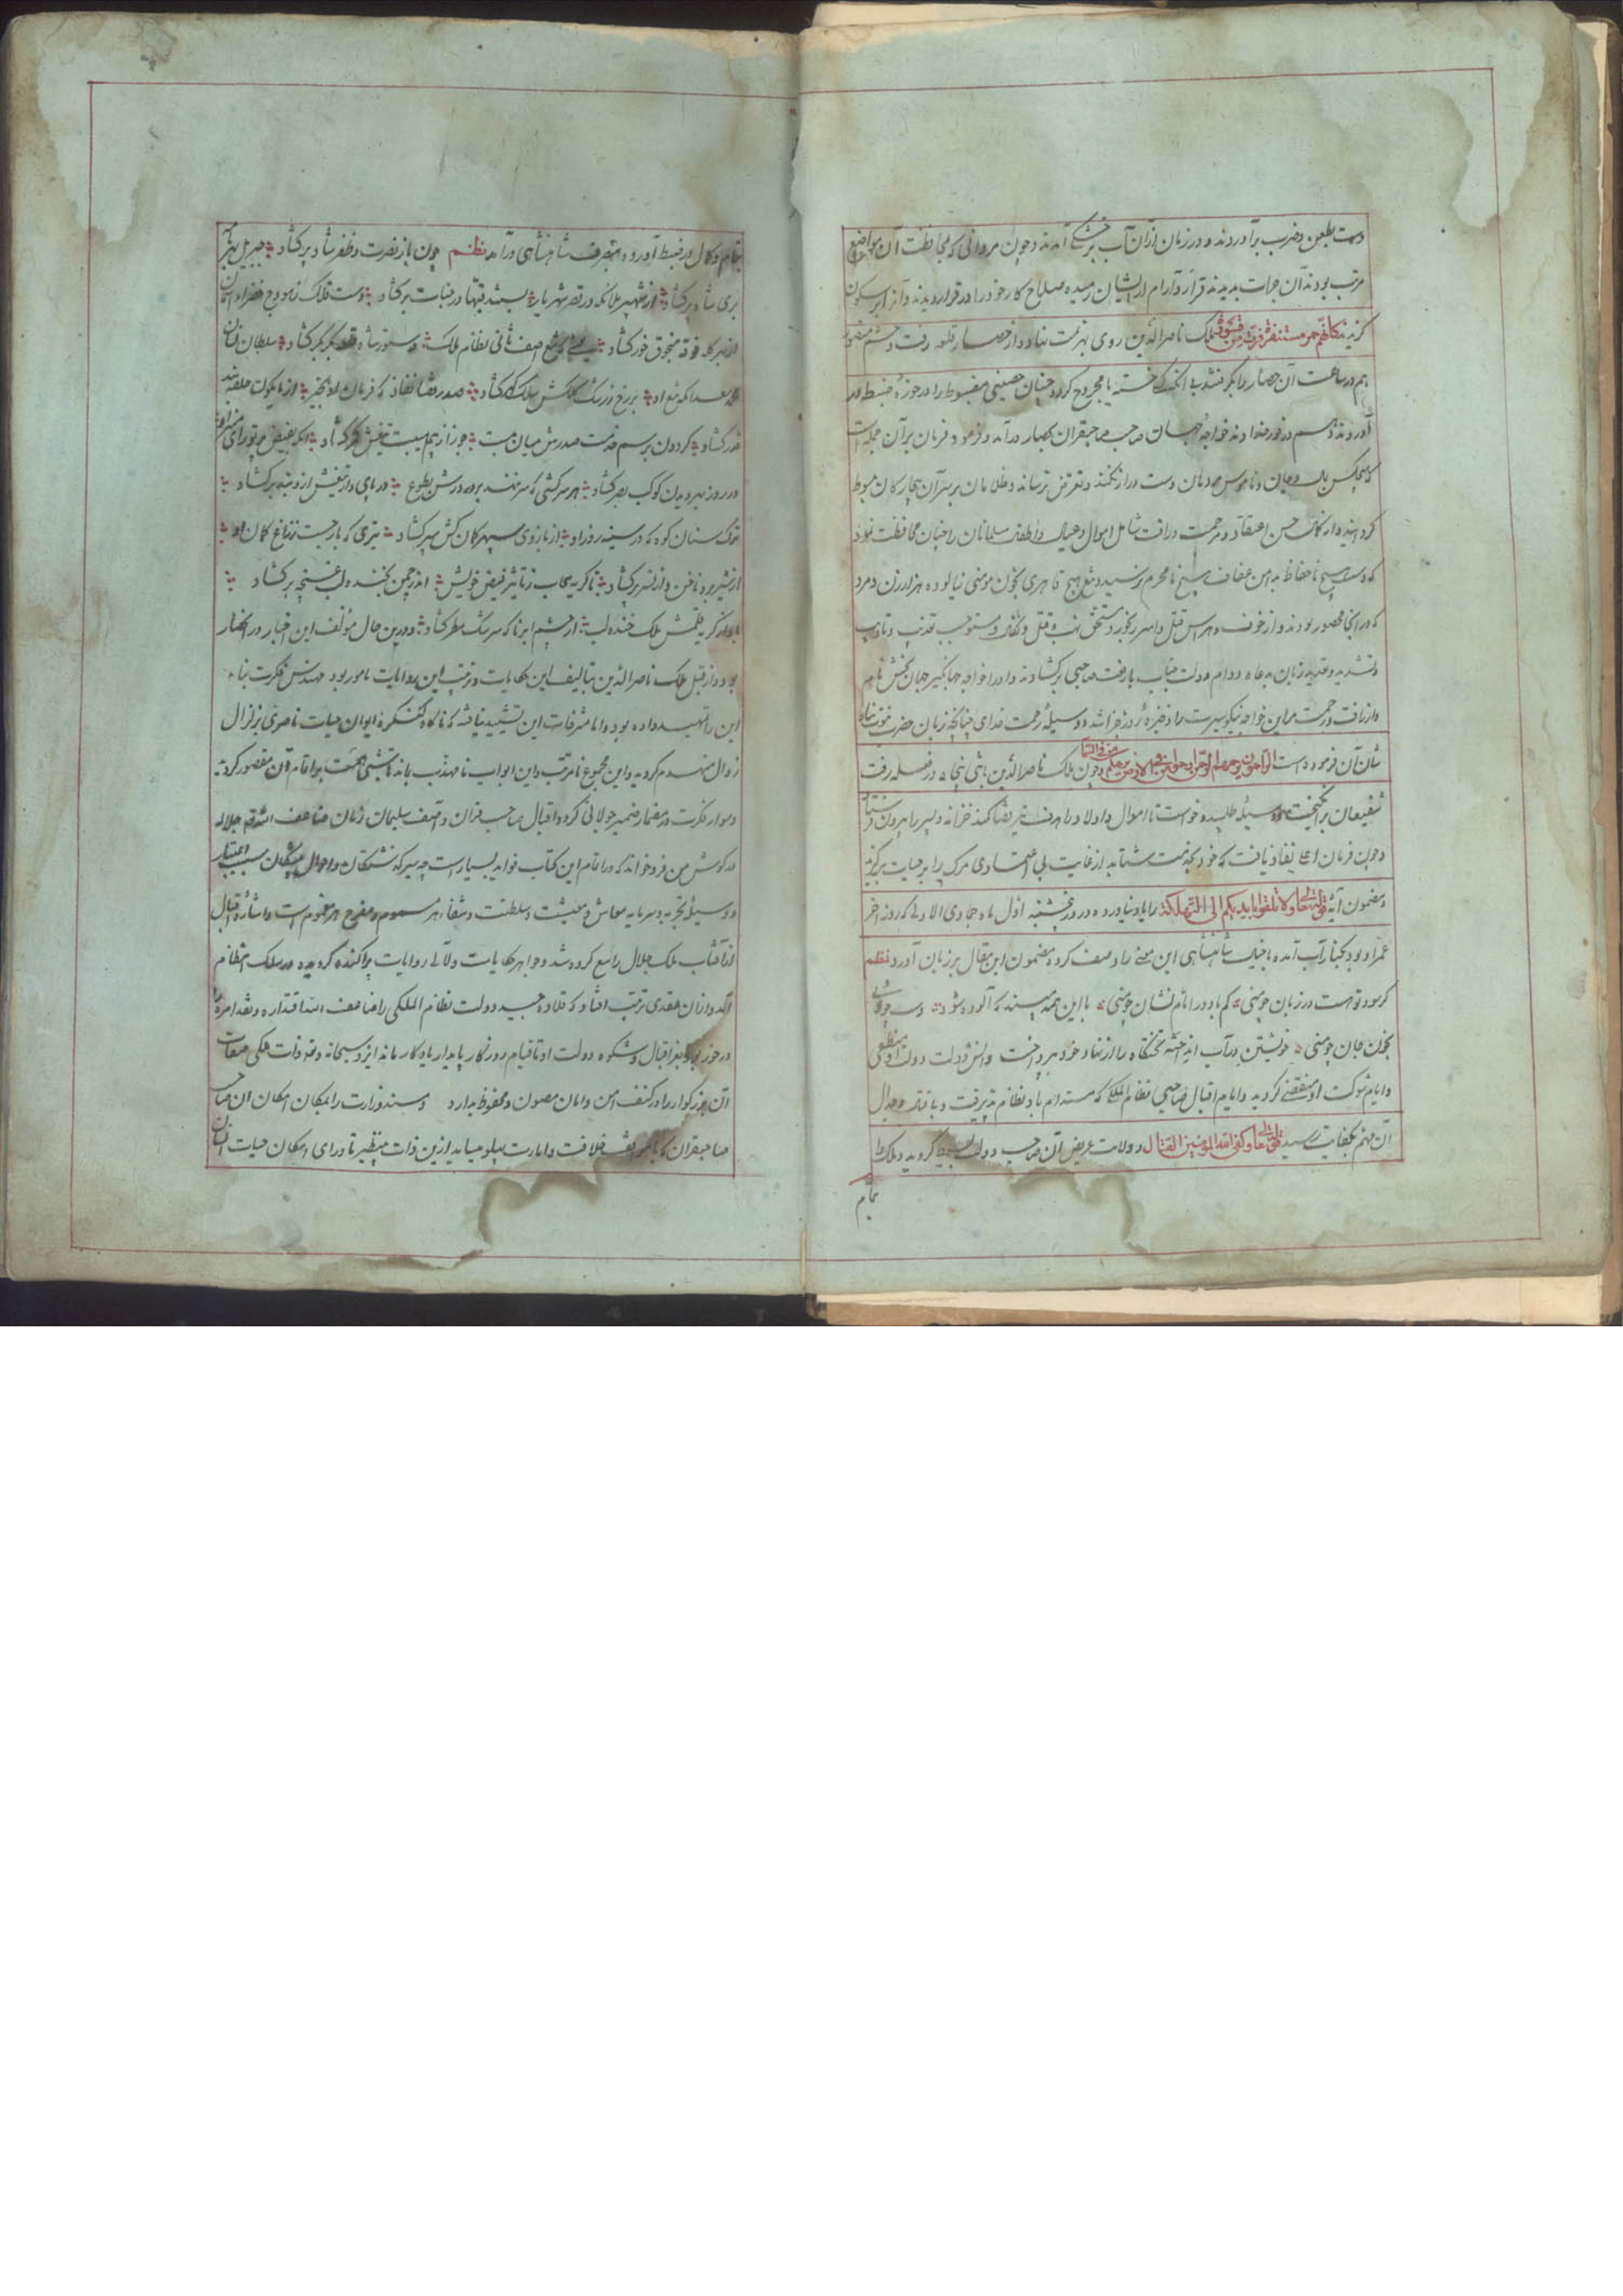 دست بطعن و ضرب برآوردند و در زمان ازان آب بر خشکی آمدند و چون مردانی که بمحافظت آن مواضع
مرتب بودند آن جرات بدیدند قرار و آرام از ایشان رمیده صلاح کار خود را در فرار دیدند و آنرا بر سکون
گزیدند کانهم حمر مستنفرة فرت من قسورة ملک ناصرالدین روی بهزیمت نهاد و از حصار قلعه رفت و حشم منصور
هم در ساعت آن حصار را بگرفتند بی آنکه کسی خسته یا مجروح گردد چنان حصنی مضبوط را در حوزه ضبط در
آوردند و هم در نور خداوند خواجه جهان صاحب صاحبقران بحصار درآمد و فرمود فرمان برآن جمله است
که هیچکس بمال و جان و ناموس مردمان دست دراز نکند و تعرض نرساند و ظلامان بر سر آن بیچارگان مربوط
گردانیده از کمال حسن اعتقاد و مرحمت و رافت شامل اموال و عیال و اطفال مسلمانان را چنان محافظت نمود
که دست هیچ ناحفاظ بدامن عفاف هیچ نامحرم نرسید و تیغ هیچ قاهری بخون مومنی نیالود ده هزار زن و مرد
که در آنجا محصور بودند و از خوف و هراس قتل و اسر رنجور و مستحق نهب و قتل و نکال و مستوجب تعذیب و تادیب
و تشدید و تهدید زبان بدعاء دوام دولت جناب بارفعت صاحبی برگشادند و اورا خواجه جهانگیر جهان بخش نام نهاد
و از رافت و رحمت مر این خواجه نیکو سیرت را ذخیره روز جزا شد و وسیله رحمت خدای چنانکه زبان حضرت نبوت پناه
شان آن فرموده است الراحمون یرحمهم الرحمن ارحموا من فی الارض یرحمکم من فی السماء و چون ملک ناصرالدین باثنی پنجاه در قلعه رفت
شفیعان برانگیخت و وسیله طلبید و خواست تا اموال و اولاد را هدف تیر قضا کند خزانه و پسر را بیرون فرستاد
و چون فرمان اعلی نفاذ یافت که خود بخدمت شتابد از غایت بی اعتمادی مرگ را بر حیات برگزید
و مضمون آیه قوله تعالی و لا تلقوا بایدیکم الی التهلکة را یاد نیاورد و در روز پنجشنبه اول ماه جمادی الاولی که روز آخر
عمر او بود بکنار آب آمده با خیل شاهنشاهی این معنی را وصف کرده مضمون این مقال بر زبان آورد نظم
گر سود تو هست در زیان چو منی کم باد در ایام نشان چو منی با این همه مپسند که آلوده شود دست چو توئی
بخون جان چو منی خویشتن در آب انداخته تختگاه را از نهاد خود بپرداخت و آتش دولت دولت او منطفی
و ایام شوکت او منقضی گردید و ایام اقبال صاحبی نظام الملکی که مستدام باد نظام پذیرفت و با قتال و جدال
آن مهم بکفایت رسید قوله تعالی و کفی الله المومنین القتال و ولایت عریض آن صاحب دولت گردید و ملک را
تمام
تمام و کمال در ضبط آورده بتصرف شاهنشاهی درآمد نظم چون باز نصرت و ظفر شاه پر گشاد جبریل بهر
بری شاه پر گشاد از شهپر ملائکه در قصر شهریار بس شد قبها در جنات برگشاد دست فلک ز بروج خضراء آسمان
از بهر کله فوقه منجوق خور گشاد یعنی که تیغ آصف ثانی نظام ملک دستور شاه بگشاد سلطان نشان
محمد سعد آنکه تیغ او بر رخ ز رنگ کلکش ملک گشاد صدر قضا نفاذ که فرمان
قدر گشاد گردون برسم خدمت صدرش میان ببست جوزا ز بیم هیبت تیغش کمر گشاد آنکه بفیض پرتو رای منیر او
در روز بهر دیدن کوکب بصر گشاد هر سرکشی که سر ننهد بر درش بطوع در پای دار تیغش از و گشاد
نوک سنان کوه که در سینه روز او از بازوی سپهر کمان کش سپر گشاد تیری که بازجست ز زاغ کمان او
از شیر برد ناخن و از نسر پر گشاد تا گریه سحاب ز تاثیر فیض خویش اندر چمن بخنده لب غنچه برگشاد
بادا ز گریه قلمش ملک خنده لب از چشم ابر تا که سرشک مطر گشاد و درین حال مؤلف این اخبار در انحصار
بود و از قبل ملک ناصرالدین بتالیف این حکایات و ترتیب این روایات مامور بود مهندس فکرت بناء
این را تمهید داده بود و اما شرفات این تشیید نیافته که ناگاه کنگره ایوان حیات ناصری بزلزال
زوال منهدم گردید و این مجموع نامرتب و این ابواب نامهذب بماند تا همت بر اتمام آن مقصور گردید
و سوار فکرت در مضمار ضمیر جولانی کرد و اقبال صاحب قران و آصف سلیمان زمان ضاعف الله قدره جلاله
در گوش من فرو خواند که در اتمام این کتاب فواید بسیار است چه سیر گذشتگان و احوال پیشینگان سبب اعتبار
و وسیله تجربه و سرمایه معاش و معیشت و سلطنت و شفاء هر مسموم و مفرح هر مغموم است و اشاره اقبال
از آفتاب ملک جلال را سمع کرده شد و جواهر حکایات و لآلی روایات پراکنده گردیده در سلک انتظام
آمد و ازان عقدی ترتیب افتاد که قلاده جید دولت نظام الملکی را ضاعف الله اقتداره و نفذ امره
در خور بود و بفر اقبال و شکوه دولت او تا قیام روزگار پایدار یادگار ماند ایزد سبحانه و تعالی ذات ملکی صفات
آن بزرگوار را در کنف امن و امان مصون و محفوظ بدارد و مسند وزارت را بمکان امکان آن صاحب
صاحبقران که خلافت و امارت پهلو میساید ازین ذات بینظیر تا ورای امکان حیات انسان